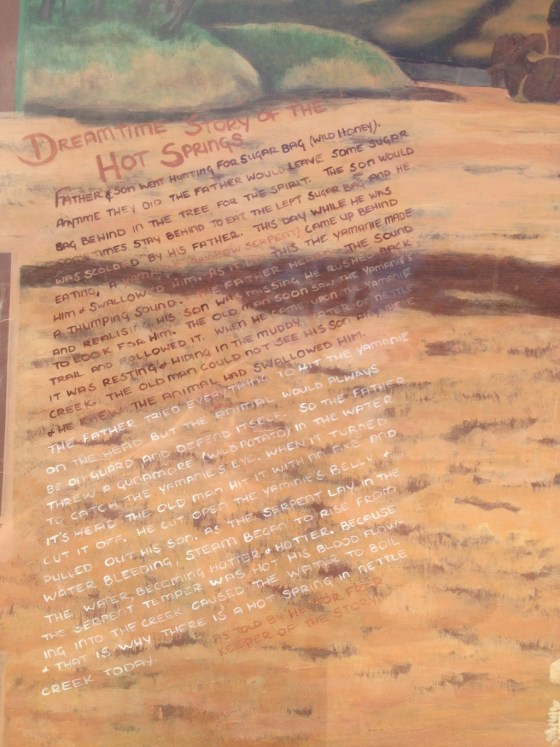 DREAMTIME STORY OF THE
HOT SPRINGS
FATHER & SON WENT HUNTING FOR SUGAR BAG (WILD HONEY).
ANYTIME THEY DID THE FATHER WOULD LEAVE SOME SUGAR
BAG BEHIND IN THE TREE FOR THE SPIRIT. THE SON WOULD
TIMES STAY BEHIND TO EAT THE LEFT SUGAR BAG AND HE
WAS SCOLD D BY HIS FATHER. THIS DAY WHILE HE WAS
EATING, A (RAINBOW SERPENT) CAME UP BEHIND
HIM & SWALLOWED HIM. AS IT THIS THE YAMANIE MADE
A THUMPING SOUND. THE FATHER HE THE SOUND
AND REALISING HIS SON WAS MISSING HE RUSHED BACK
TO LOOK FOR HIM. THE OLD MAN SOON SAW THE YAMANIE'S
TRAIL AND FOLLOWED IT. WHEN HE CAME UPON THE YAMANIE
IT WAS RESTING & HIDING IN THE MUDDY WATER OF NETTLE
CREEK. THE OLD MAN COULD NOT SEE HIS SON ANYWHERE
& HE KNEW THE ANIMAL HAD SWALLOWED HIM.
THE FATHER TRIED EVERYTHING TO HIT THE YAMANIE
ON THE HEAD BUT THE ANIMAL WOULD ALWAYS
BE ON GUARD AND DEFEND ITSELF. SO THE FATHER
THREW A (WILD POTATO) IN THE WATER
TO CATCH THE YAMANIE'S EYE. WHEN IT TURNED
IT'S HEAD THE OLD MAN HIT IT WITH AN AXE AND
CUT IT OFF. HE CUT OPEN THE YAMANIE'S BELLY &
PULLED OUT HIS SON. AS THE SERPENT LAY IN THE
WATER BLEEDING, STEAM BEGAN TO RISE FROM
THE WATER, BECOMING HOTTER & HOTTER. BECAUSE
THE SERPENT TEMPER WAS HOT HIS BLOOD FLOW-
ING INTO THE CREEK CAUSED THE WATER TO BOIL
& THAT IS WHY THERE IS A HOT SPRING IN NETTLE
CREEK TODAY.
AS TOLD BY FRED
KEEPER OF THE STORY